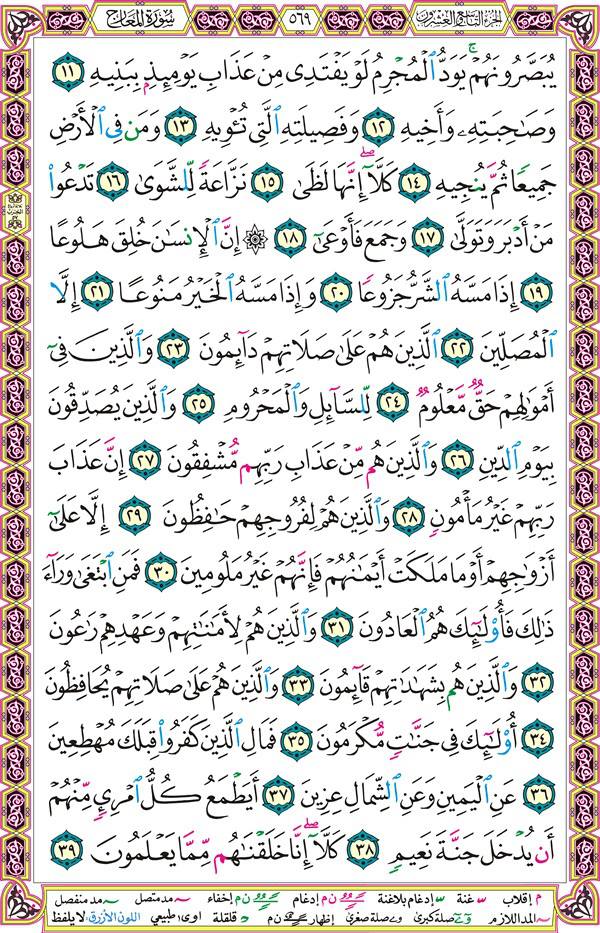 الجزء التاسع والعشرون ٥٦٩ سورة المعارج
يُبَصَّرُونَهُمْ ۚ يَوَدُّ ٱلْمُجْرِمُ لَوْ يَفْتَدِى مِنْ عَذَابِ يَوْمِئِذٍۭ بِبَنِيهِ ١١
وَصَٰحِبَتِهِۦ وَأَخِيهِ ١٢ وَفَصِيلَتِهِ ٱلَّتِى تُـْٔوِيهِ ١٣ وَمَن فِى ٱلْأَرْضِ
جَمِيعًا ثُمَّ يُنجِيهِ ١٤ كَلَّآ ۖ إِنَّهَا لَظَىٰ ١٥ نَزَّاعَةً لِّلشَّوَىٰ ١٦ تَدْعُوا۟
مَنْ أَدْبَرَ وَتَوَلَّىٰ ١٧ وَجَمَعَ فَأَوْعَىٰٓ ١٨ ۞ إِنَّ ٱلْإِنسَٰنَ خُلِقَ هَلُوعًا
١٩ إِذَا مَسَّهُ ٱلشَّرُّ جَزُوعًا ٢٠ وَإِذَا مَسَّهُ ٱلْخَيْرُ مَنُوعًا ٢١ إِلَّا
ٱلْمُصَلِّينَ ٢٢ ٱلَّذِينَ هُمْ عَلَىٰ صَلَاتِهِمْ دَآئِمُونَ ٢٣ وَٱلَّذِينَ فِىٓ
أَمْوَٰلِهِمْ حَقٌّ مَّعْلُومٌ ٢٤ لِّلسَّآئِلِ وَٱلْمَحْرُومِ ٢٥ وَٱلَّذِينَ يُصَدِّقُونَ
بِيَوْمِ ٱلدِّينِ ٢٦ وَٱلَّذِينَ هُم مِّنْ عَذَابِ رَبِّهِم مُّشْفِقُونَ ٢٧ إِنَّ عَذَابَ
رَبِّهِمْ غَيْرُ مَأْمُونٍ ٢٨ وَٱلَّذِينَ هُمْ لِفُرُوجِهِمْ حَٰفِظُونَ ٢٩ إِلَّا عَلَىٰٓ
أَزْوَٰجِهِمْ أَوْ مَا مَلَكَتْ أَيْمَٰنُهُمْ فَإِنَّهُمْ غَيْرُ مَلُومِينَ ٣٠ فَمَنِ ٱبْتَغَىٰ وَرَآءَ
ذَٰلِكَ فَأُو۟لَٰٓئِكَ هُمُ ٱلْعَادُونَ ٣١ وَٱلَّذِينَ هُمْ لِأَمَٰنَٰتِهِمْ وَعَهْدِهِمْ رَٰعُونَ
٣٢ وَٱلَّذِينَ هُم بِشَهَٰدَٰتِهِمْ قَآئِمُونَ ٣٣ وَٱلَّذِينَ هُمْ عَلَىٰ صَلَاتِهِمْ يُحَافِظُونَ
٣٤ أُو۟لَٰٓئِكَ فِى جَنَّٰتٍ مُّكْرَمُونَ ٣٥ فَمَالِ ٱلَّذِينَ كَفَرُوا۟ قِبَلَكَ مُهْطِعِينَ
٣٦ عَنِ ٱلْيَمِينِ وَعَنِ ٱلشِّمَالِ عِزِينَ ٣٧ أَيَطْمَعُ كُلُّ ٱمْرِئٍ مِّنْهُمْ
أَن يُدْخَلَ جَنَّةَ نَعِيمٍ ٣٨ كَلَّآ ۖ إِنَّا خَلَقْنَٰهُم مِّمَّا يَعْلَمُونَ ٣٩
م إقلاب غنة إدغام بلاغنة ن م إدغام ن م إخفاء مد متصل مد منفصل
المد اللازم صلة كبرى صلة صغرى إظهار ن م قلقلة اوى طبيعي اللون الأزرق لا يلفظ